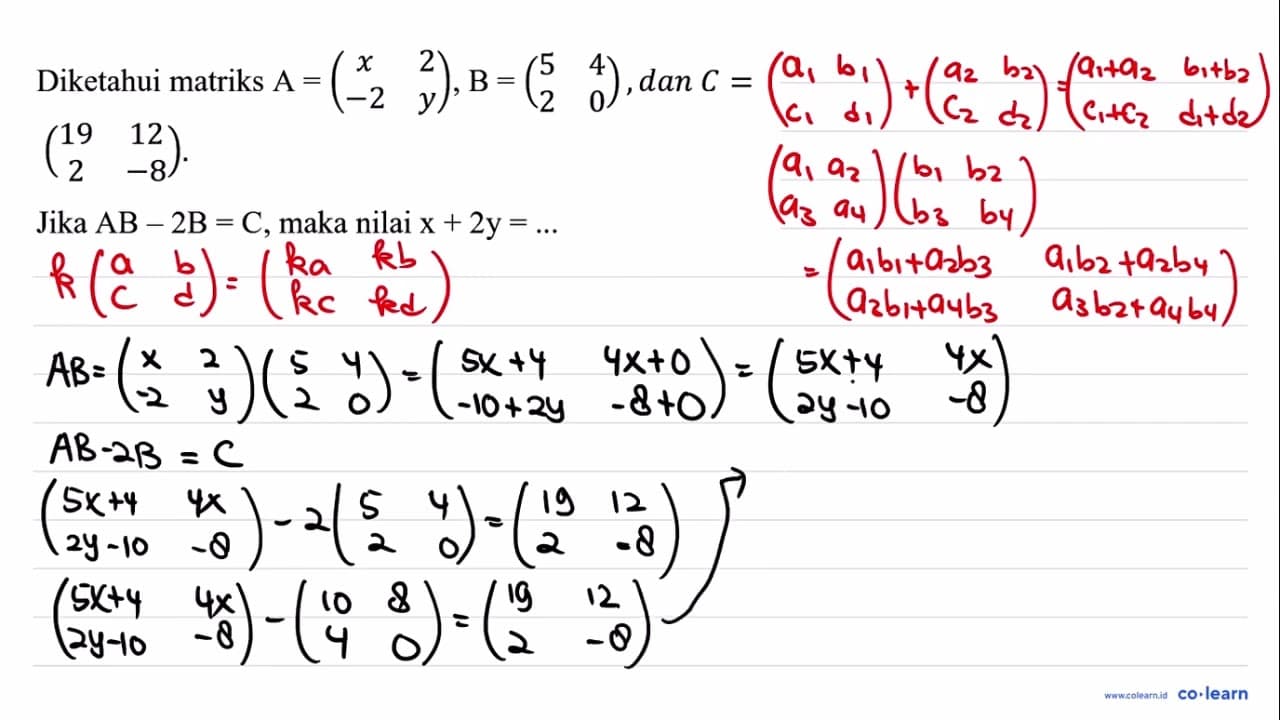 Diketahui matriks A = (x 2; −2 y), B = (5 4; 2 0), dan C =
(19 12; 2 −8).
Jika AB – 2B = C, maka nilai x + 2y = ...
(a1 b1; c1 d1) + (a2 b2; c2 d2) = (a1+a2 b1+b2; c1+c2 d1+d2)
(a1 a2; a3 a4)(b1 b2; b3 b4)
= (a1b1+a2b3 a1b2+a2b4; a2b1+a4b3 a3b2+a4b4)
k(a b; c d) = (ka kb; kc kd)
AB = (x 2; -2 y)(5 4; 2 0) = (5x+4 4x+0; -10+2y -8+0) = (5x+4 4x; 2y-10 -8)
AB-2B = C
(5x+4 4x; 2y-10 -8) - 2(5 4; 2 0) = (19 12; 2 -8)
(5x+4 4x; 2y-10 -8) - (10 8; 4 0) = (19 12; 2 -8)
www.colearn.id co·learn